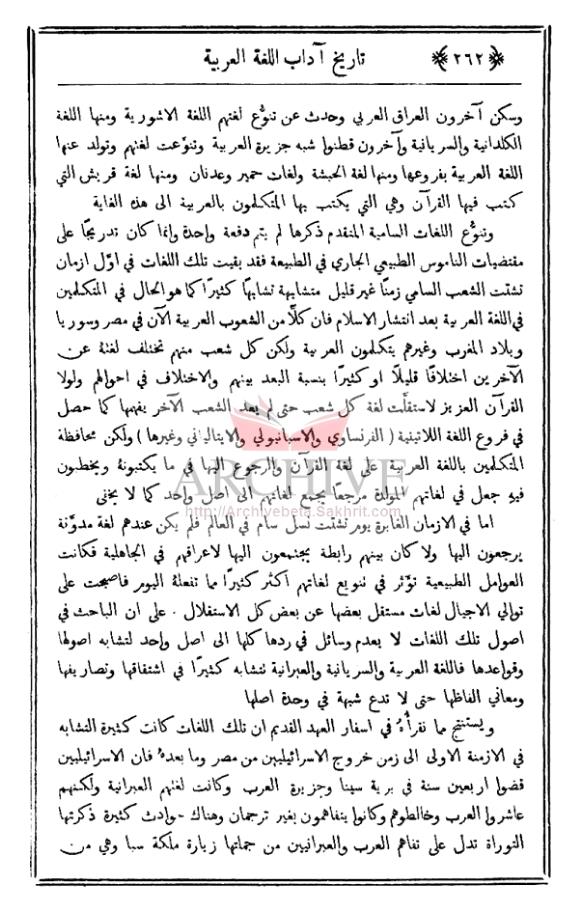 ﴿٢٦٢﴾ تاريخ آداب اللغة العربية
وسكن آخرون العراق العربي وحدث عن تنوُّع لغتهم اللغة الاشورية ومنها اللغة
الكلدانية والسريانية وآخرون قطنوا شبه جزيرة العربية وتنوَّعت لغتهم وتولد عنها
اللغة العربية بفروعها ومنها لغة الحبشة ولغات حمير وعدنان ومنها لغة قريش التي
كتب فيها القرآن وهي التي يكتب بها المتكلمون بالعربية الى هذه الغاية
وتنوُّع اللغات السامية المتقدم ذكرها لم يتم دفعة واحدة وانما كان تدريجًا على
مقتضيات الناموس الطبيعي الجاري في الطبيعة فقد بقيت تلك اللغات في اوَّل ازمان
تشتت الشعب السامي زمنًا غير قليل متشابهة تشابهًا كثيرًا كما هو الحال في المتكلمين
في اللغة العربية بعد انتشار الاسلام فان كلًّا من الشعوب العربية الآن في مصر وسوريا
وبلاد المغرب وغيرهم يتكلمون العربية ولكن كل شعب منهم تختلف لغتهُ عن
الآخرين اختلافًا قليلًا او كثيرًا بنسبة البعد بينهم والاختلاف في احوالهم ولولا
القرآن العزيز لاستقلَّت لغة كل شعب حتى لم يعد الشعب الآخر يفهمها كما حصل
في فروع اللغة اللاتينية ( الفرنساوي والاسبانيولي والايتالياني وغيرها ) ولكن محافظة
المتكلمين باللغة العربية على لغة القرآن والرجوع اليها في ما يكتبونهُ ويخطبون
فيهِ جعل في لغاتهم المولدة مرجعًا يجمع لغاتهم الى اصل واحد كما لا يخفى
ARCHIVE
http://Archivebeta.Sakhrit.com
اما في الازمان الغابرة يوم تشتت نسل سام في العالم فلم يكن عندهم لغة مدوَّنة
يرجعون اليها ولا كان بينهم رابطة يجتمعون اليها لاعراقهم في الجاهلية فكانت
العوامل الطبيعية توْثر في تنويع لغاتهم اكثر كثيرًا مما تفعلهُ اليوم فاصبحت على
توالي الاجيال لغات مستقل بعضها عن بعض كل الاستقلال . على ان الباحث في
اصول تلك اللغات لا يعدم وسائل في ردها كلها الى اصل واحد لتشابه اصولها
وقواعدها فاللغة العربية والسريانية والعبرانية تتشابه كثيرًا في اشتقاقها وتصاريفها
ومعاني الفاظها حتى لا تدع شبهة في وحدة اصلها
ويستنتج مما نقرأُهُ في اسفار العهد القديم ان تلك اللغات كانت كثيرة التشابه
في الازمنة الاولى الى زمن خروج الاسرائيليين من مصر وما بعدهُ فان الاسرائيليين
قضوا اربعين سنة في برية سينا وجزيرة العرب وكانت لغتهم العبرانية ولكنهم
عاشروا العرب وخالطوهم وكانوا يتفاهمون بغير ترجمان وهناك حوادث كثيرة ذكرتها
التوراة تدل على تفاهم العرب والعبرانيين من جملتها زيارة ملكة سبا وهي من